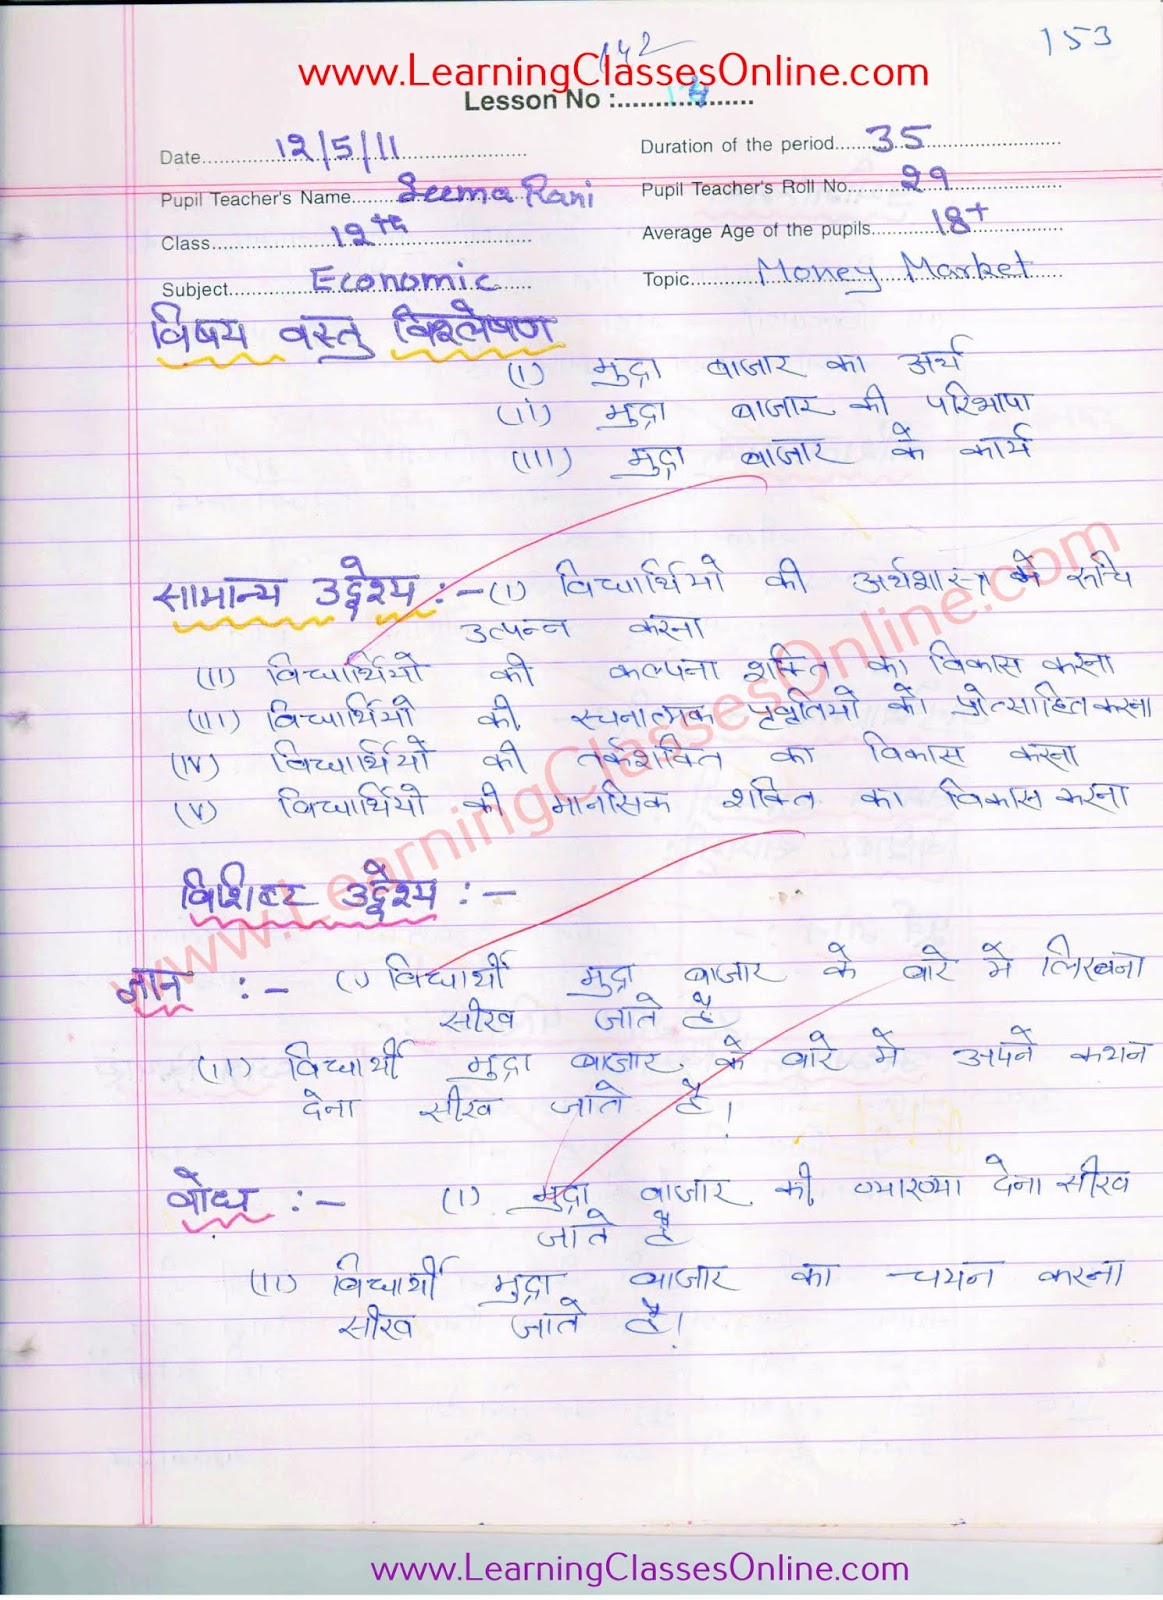 142
153
www.LearningClassesOnline.com
Lesson No :..................
Date 12/5/11 Duration of the period 35
Pupil Teacher's Name Seema Rani Pupil Teacher's Roll No. 29
Class 12th Average Age of the pupils 18+
Subject Economic Topic Money Market
विषय वस्तु विश्लेषण
(I) मुद्रा बाजार का अर्थ
(II) मुद्रा बाजार की परिभाषा
(III) मुद्रा बाजार के कार्य
सामान्य उद्देश्य :- (I) विद्यार्थियो की अर्थशास्त्र में रुचि
उत्पन्न करना
(II) विद्यार्थियो की कल्पना शक्ति का विकास करना
(III) विद्यार्थियो की रचनात्मक प्रवृतियो को प्रोत्साहित करना
(IV) विद्यार्थियो की तर्कशक्ति का विकास करना
(V) विद्यार्थियो की मानसिक शक्ति का विकास करना
विशिष्ट उद्देश्य :-
ज्ञान :- (I) विद्यार्थी मुद्रा बाजार के बारे में लिखना
सीख जाते है
(II) विद्यार्थी मुद्रा बाजार के बारे में अपने कथन
देना सीख जाते है।
बोध :- (I) मुद्रा बाजार की व्याख्या देना सीख
जाते है
(II) विद्यार्थी मुद्रा बाजार का चयन करना
सीख जाते है।
www.LearningClassesOnline.com
www.LearningClassesOnline.com